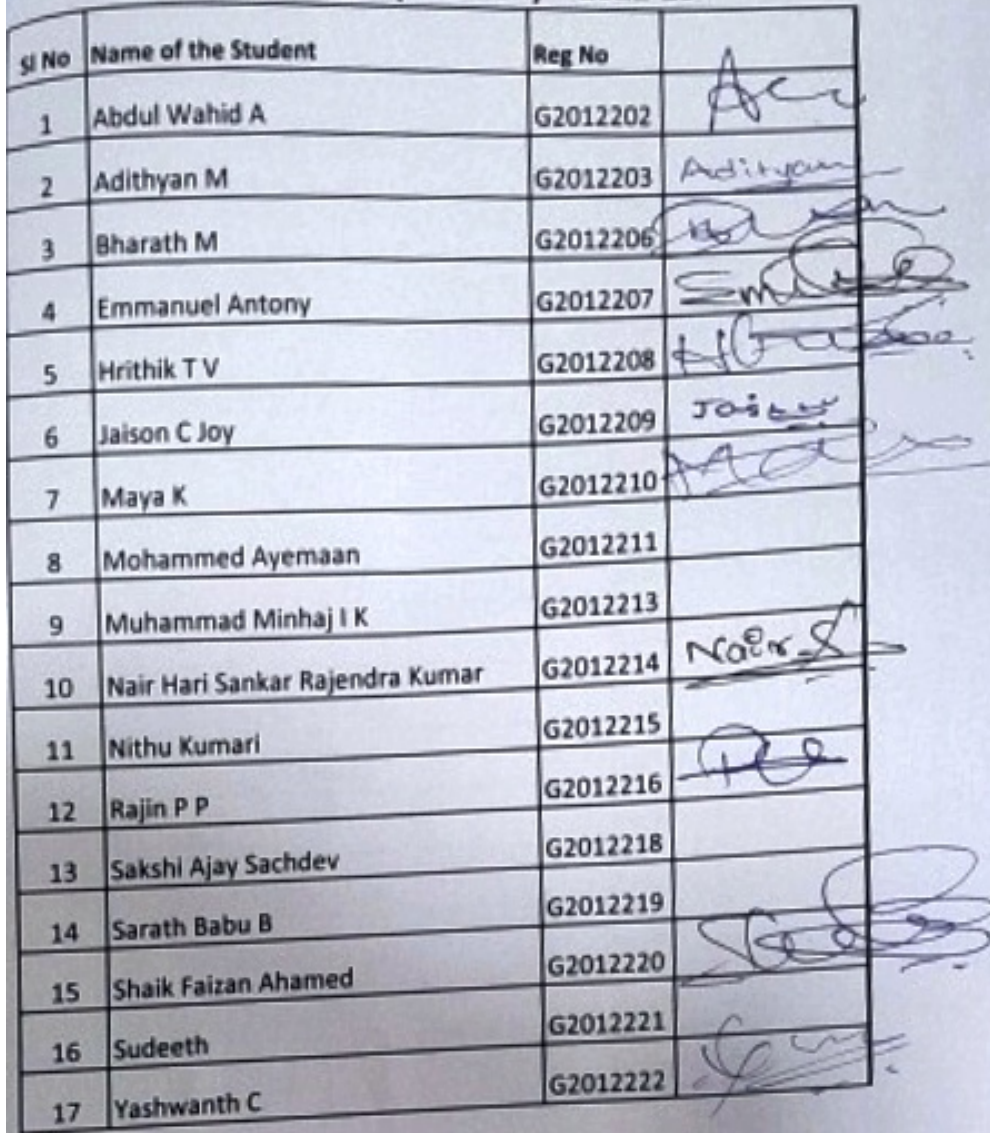 Sl No Name of the Student Reg No
1 Abdul Wahid A G2012202
2 Adithyan M G2012203 Adithyan
3 Bharath M G2012206
4 Emmanuel Antony G2012207
5 Hrithik T V G2012208
6 Jaison C Joy G2012209
7 Maya K G2012210
8 Mohammed Ayemaan G2012211
9 Muhammad Minhaj I K G2012213
10 Nair Hari Sankar Rajendra Kumar G2012214 Nair
11 Nithu Kumari G2012215
12 Rajin P P G2012216
13 Sakshi Ajay Sachdev G2012218
14 Sarath Babu B G2012219
15 Shaik Faizan Ahamed G2012220
16 Sudeeth G2012221
17 Yashwanth C G2012222